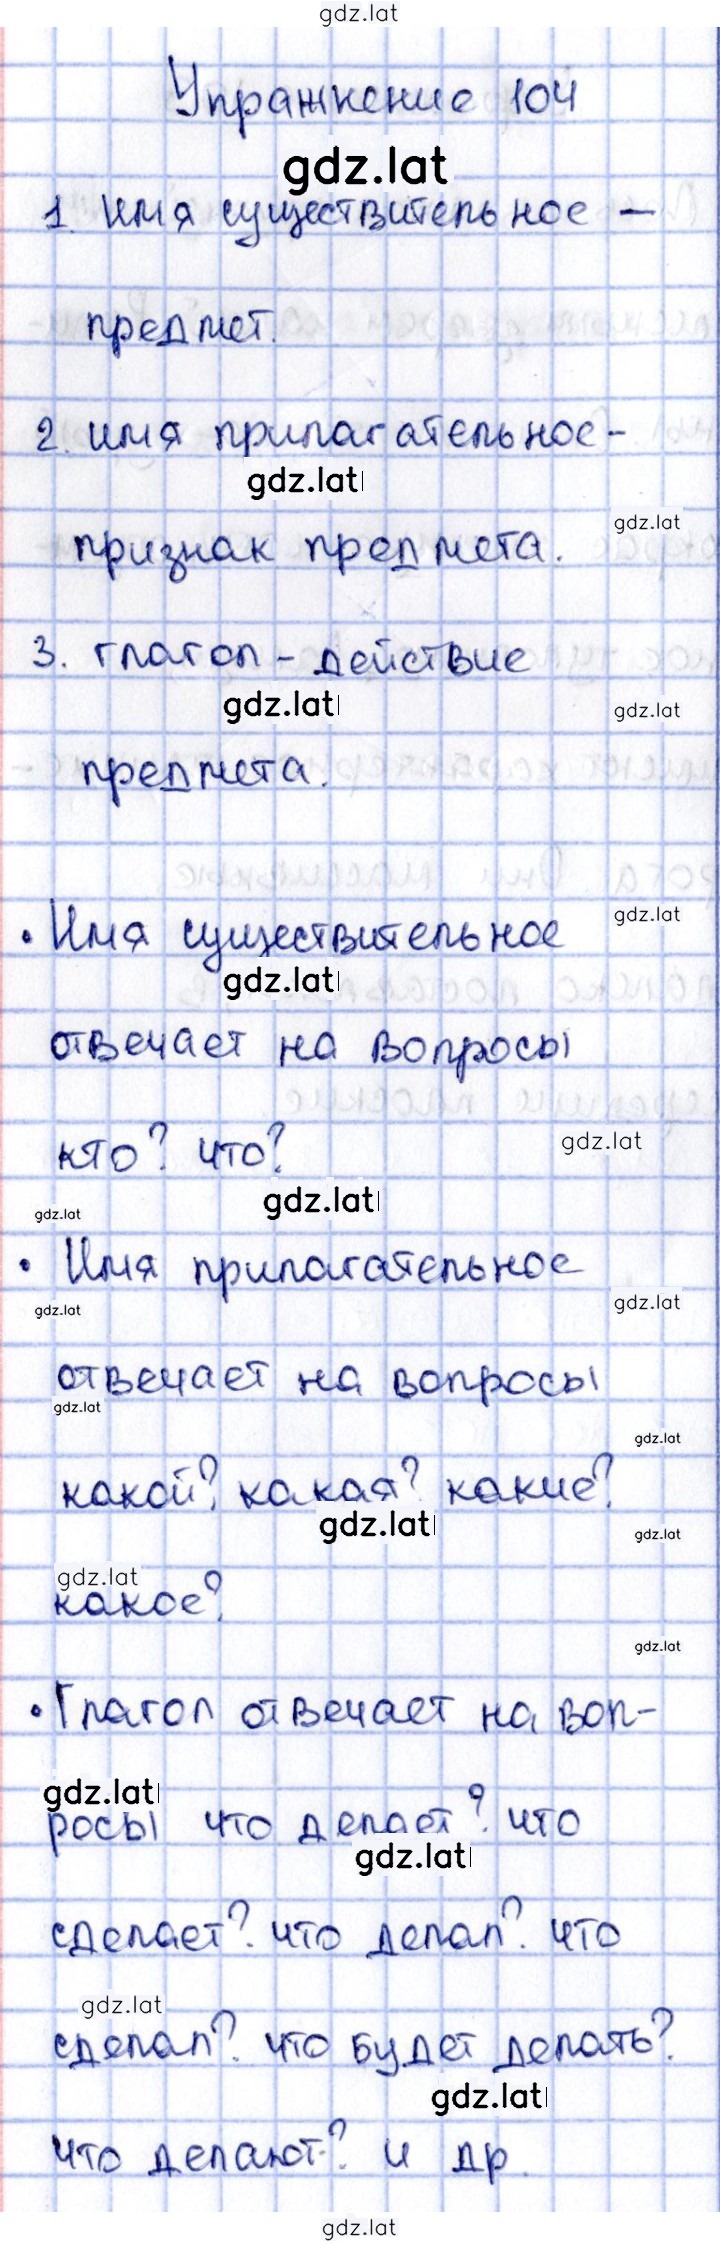 gdz.lat
Упражнение 104
gdz.lat
1. имя существительное –
предмет.
2. имя прилагательное –
gdz.lat
gdz.lat
признак предмета.
3. глагол – действие
gdz.lat
gdz.lat
предмета.
gdz.lat
• Имя существительное
gdz.lat
отвечает на вопросы
gdz.lat
кто? что?
gdz.lat
gdz.lat
• Имя прилагательное
gdz.lat
gdz.lat
отвечает на вопросы
gdz.lat
gdz.lat
какой? какая? какие?
gdz.lat
gdz.lat
gdz.lat
какое?
gdz.lat
• Глагол отвечает на воп-
gdz.lat
росы что делает? что
gdz.lat
сделает? что делал? что
gdz.lat
сделал? что будет делать?
gdz.lat
что делают? и др.
gdz.lat